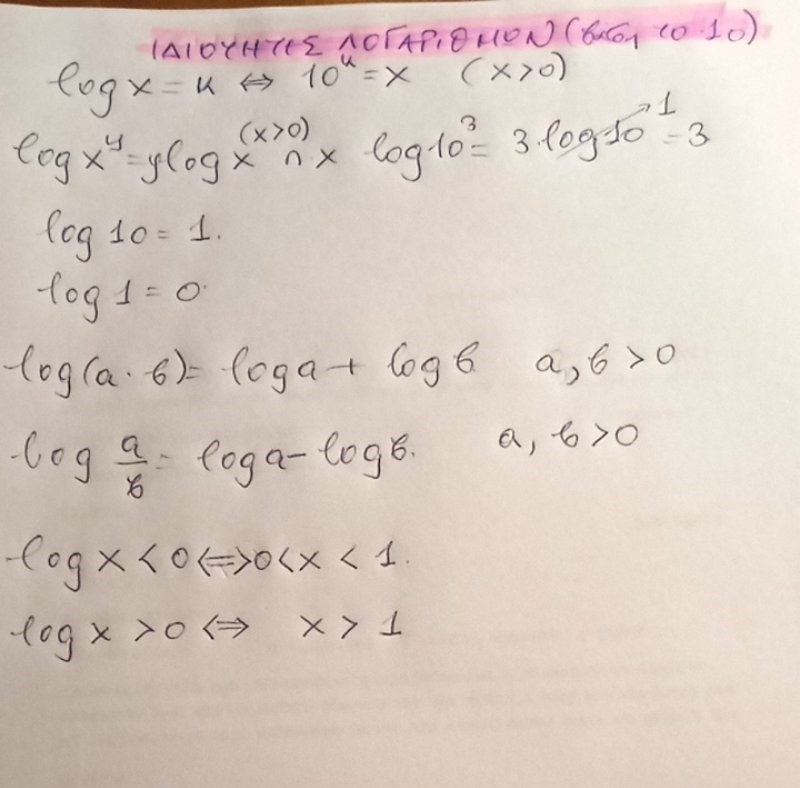 ΙΔΙΟΤΗΤΕΣ ΛΟΓΑΡΙΘΜΩΝ (βάση το 10)
log x = κ ⇔ 10^κ = x (x>0)
log x^y = y log x (x>0) π.χ log 10^3 = 3·log 10 → 1 = 3
log 10 = 1.
log 1 = 0.
log(a·β) = log a + log β a, β > 0
log a/β = log a - log β. a, β > 0
log x < 0 ⇔ 0 < x < 1.
log x > 0 ⇔ x > 1